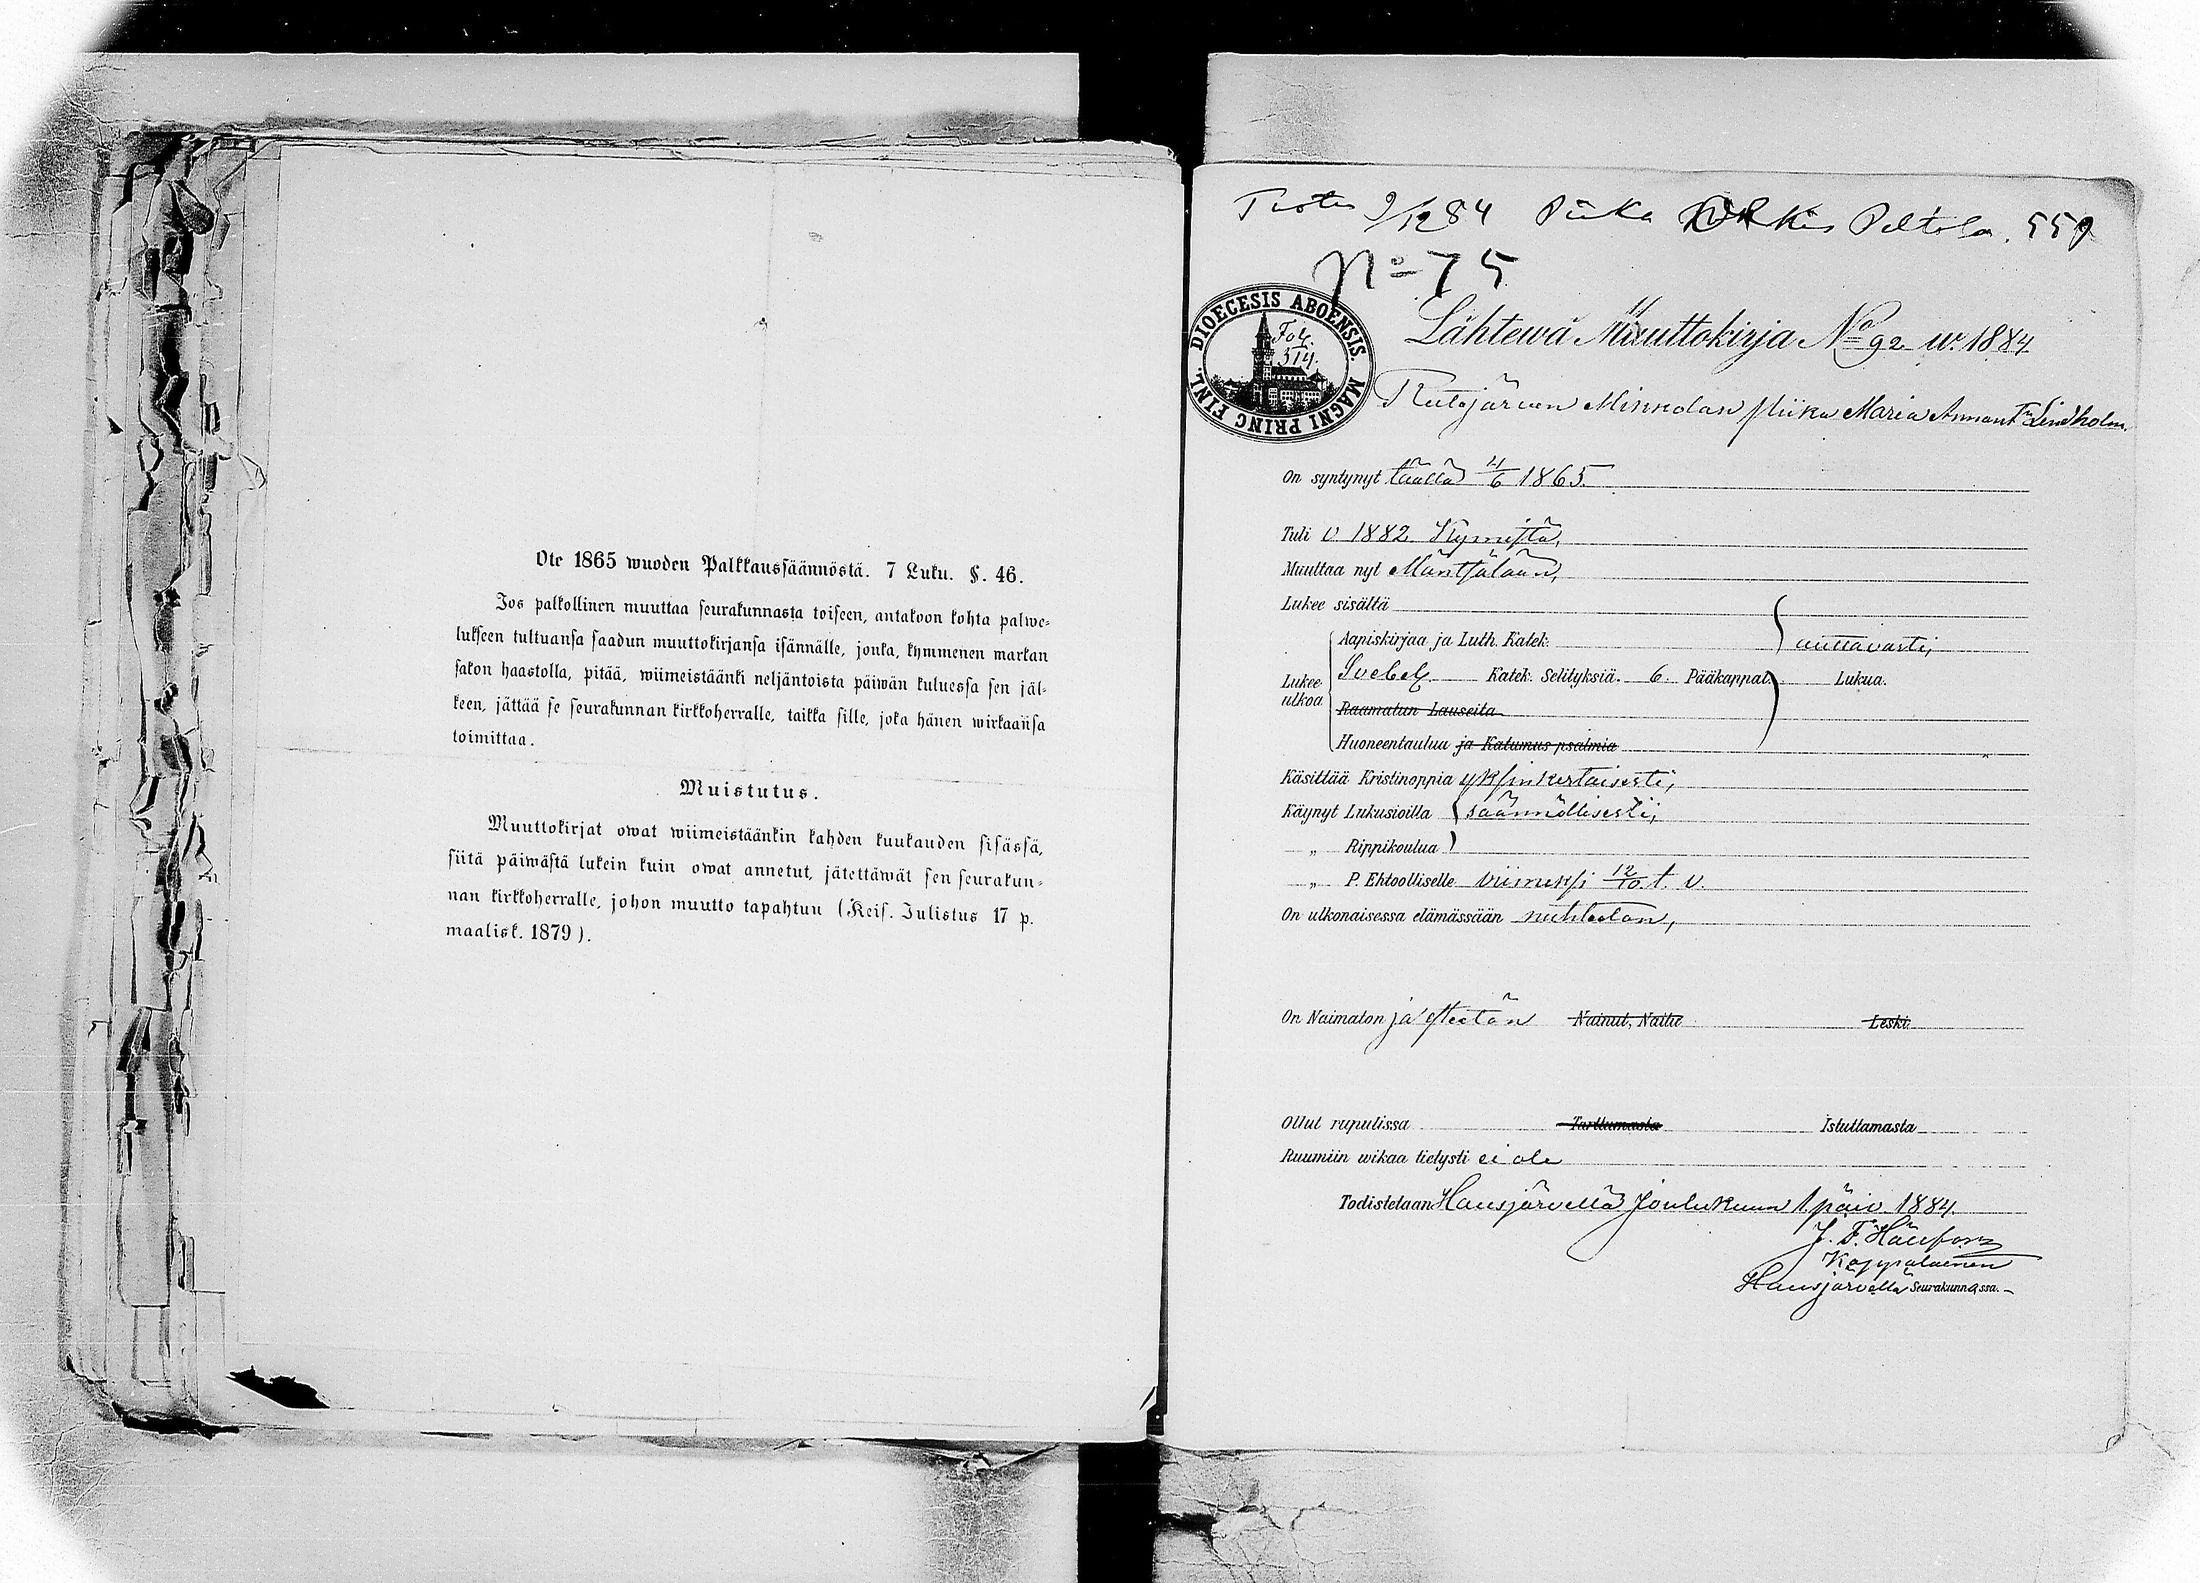 Ote 1865 wuoden Palkkaussäännöstä. 7 Luku. §. 46.
Jos palkollinen muuttaa seurakunnasta toiseen, antakoon kohta palwe-
lukseen tultuansa saadun muuttokirjansa isännälle, jonka, kymmenen markan
sakon haastolla, pitää, wiimeistäänki neljäntoista päiwän kuluessa sen jäl-
keen, jättää se seurakunnan kirkkoherralle, taikka sille, joka hänen wirkaansa
toimittaa.
Muistutus.
Muuttokirjat owat wiimeistäänkin kahden kuukauden sisässä,
siitä päiwästä lukein kuin owat annetut, jätettäwät sen seurakun-
nan kirkkoherralle, johon muutto tapahtuu (Keis. Julistus 17 p.
maalisk. 1879).
9/12 84 Piika Peltola. 559
No 75
DIOECESIS ABOENSIS. MAGNI PRINC FINL.
Fol.
514.
Lähtewä Muuttokirja No 92 w. 1884
Minkolan piika Maria Amanda Lindholm.
On syntynyt täällä 4/6 1865.
Tuli v. 1882 Kymistä,
Muuttaa nyt Mäntsälään,
Lukee sisältä
Aapiskirjaa ja Luth. Katek. auttavasti,
Lukee ulkoa Svebel. Katek. Selityksiä. 6. Pääkappal. Lukua.
Raamatun Lauseita
Huoneentaulua ja Katumus psalmia
Käsittää Kristinoppia yksinkertaisesti,
Käynyt Lukusioilla säännöllisesti,
„ Rippikoulua
„ P. Ehtoolliselle viimeksi 12/10 t. v.
On ulkonaisessa elämässään nuhteeton,
On Naimaton ja esteetön Nainut, Naitu Leski
Ollut rupulissa Tarttumasta Istuttamasta
Ruumiin wikaa tietysti ei ole
Todistetaan Hausjärvellä Joulukuun 1 päiv. 1884.
Kappalainen
Hausjärvellä Seurakunnassa.